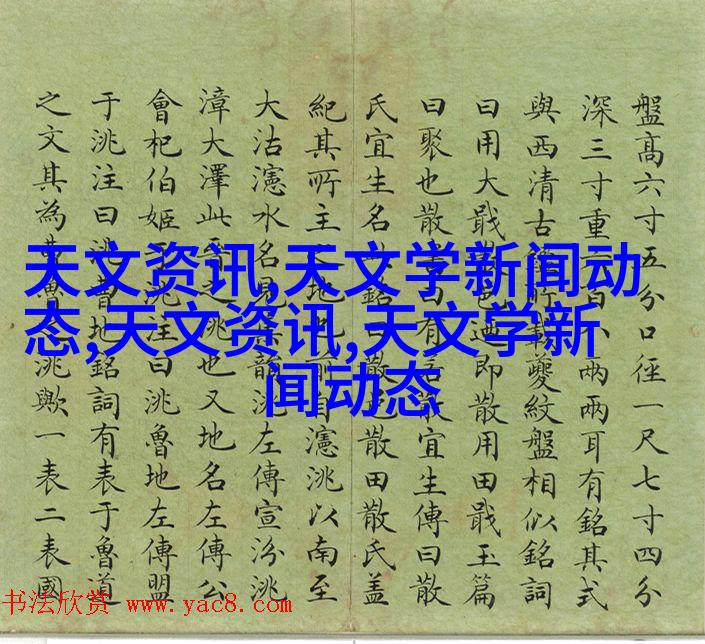 盤高六寸五分口徑一尺七寸四分
深三寸重百兩兩耳有銘其式
與西清古載夔紋盤相似銘詞
曰用大戩迺即散用田戩玉篇
曰聚也散曰有散宜生傳曰散
氏宜生名銘散散田散氏蓋
紀其所主地也自瀗洮以南至
大沽瀗水名見韻洮左傳宣汾洮
漳大澤此晉之洮也又地名左傳公
會杞伯姬于洮注曰洮魯地左傳盟
于洮注曰洮曹地銘詞有表于魯道
之文其為魯洮歟一表二表國
天文资讯,天文学新闻动
态,天文资讯,天文学新
闻动态
书法欣赏 www.yac8.com